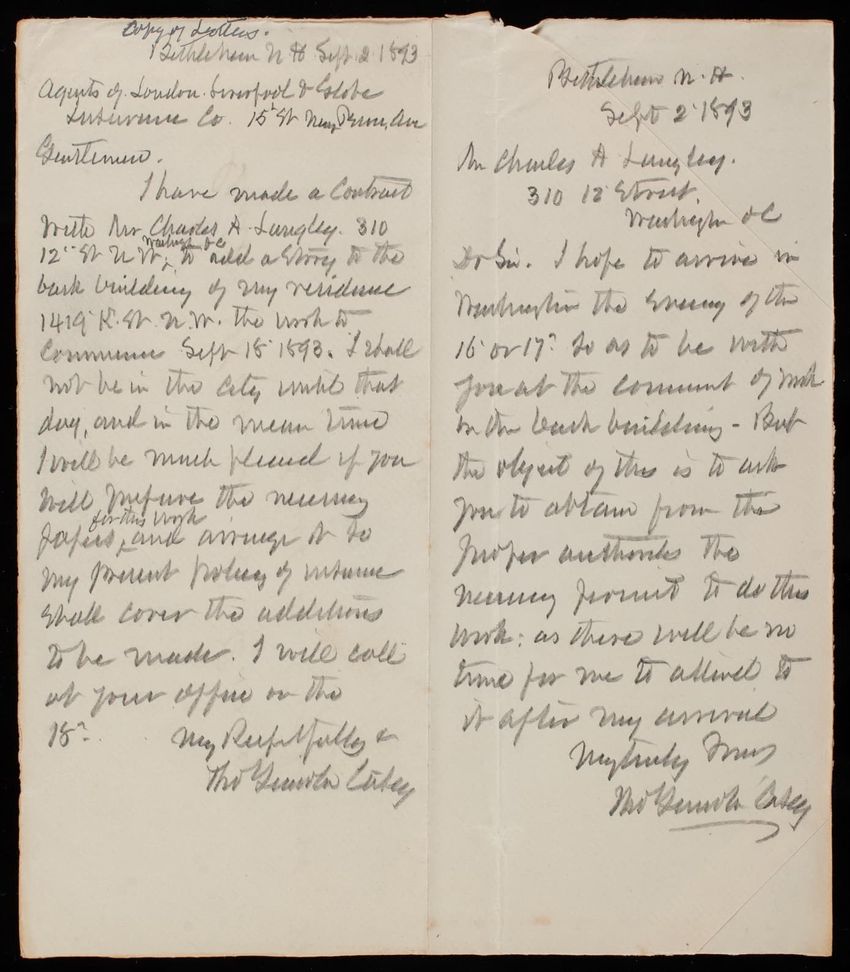 Copy of Letters.
Bethlehem N H Sept 2 1893
Agents of London Liverpool & Globe
Insurance Co. 15th St near Penn. Ave
Gentlemen.
I have made a Contract
With Mr Charles A. Langley. 310
Washington DC
12th St N.W. to add a Story to the
back building of my residence
1419 K. St. N.W. the work to
Commence Sept 18 1893. I shall
not be in the city until that
day, and in the mean time
I will be much pleased if you
will prepare the necessary
for this work
papers, and arrange it so
my present policy of insurance
shall cover the additions
to be made. I will call
at your office on the
18th.
Very Respectfully &
Tho Lincoln Casey
Bethlehem N. H.
Sept 2 1893
Mr Charles A Langley.
310 12 Street.
Washington DC
Dr Sir. I hope to arrive in
Washington the Evening of the
16 or 17th so as to be with
you at the commencement of work
on the back building - But
the object of this is to ask
you to obtain from the
proper authorities the
necessary permit to do this
work: as there will be no
time for me to attend to
it after my arrival
Very truly Yours
Tho Lincoln Casey